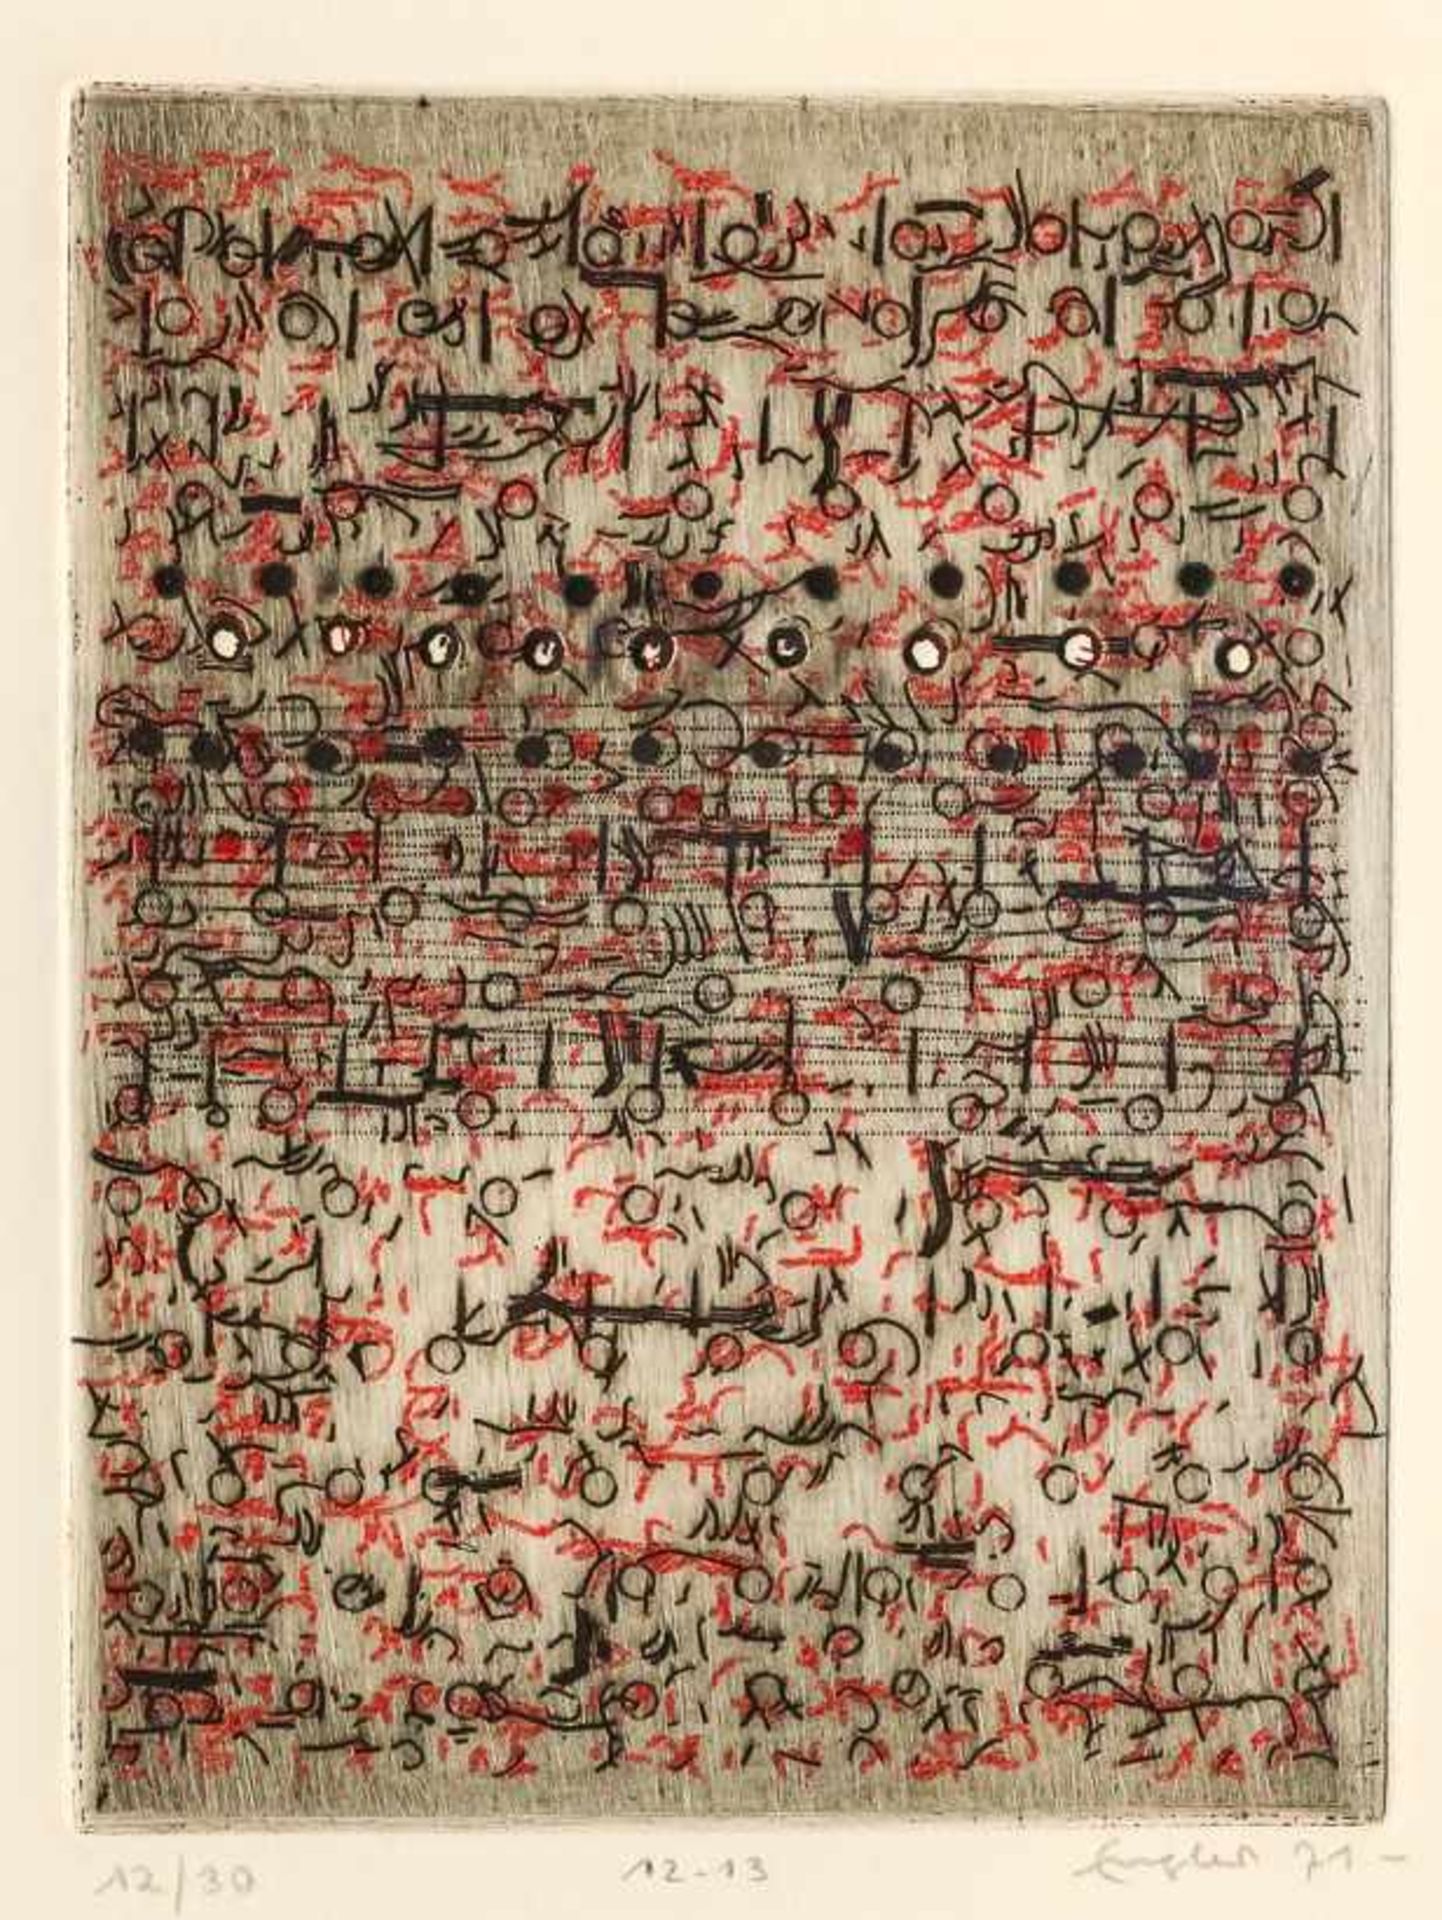 12/30
12-13
Engler 71.-